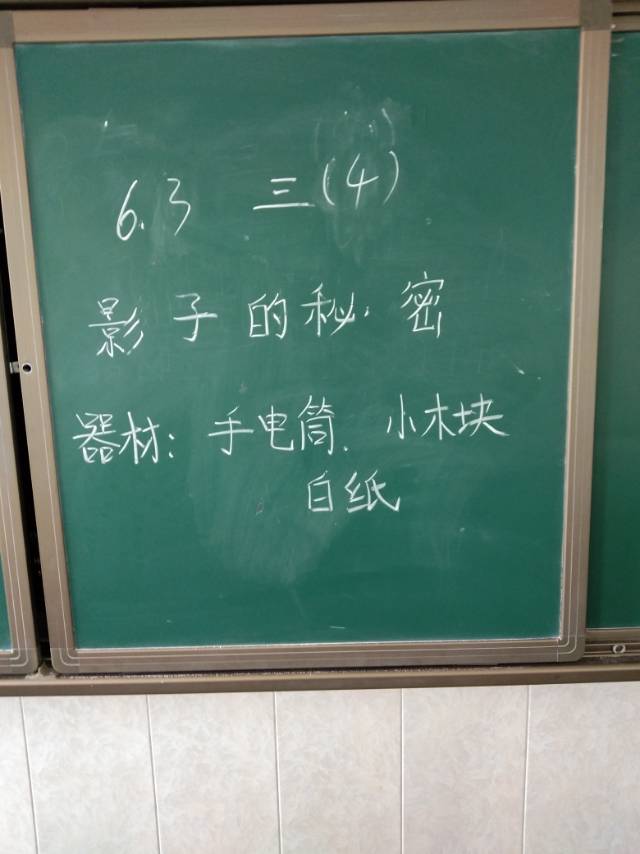 6.3 三(4)
影子的秘密
器材: 手电筒、小木块
白纸